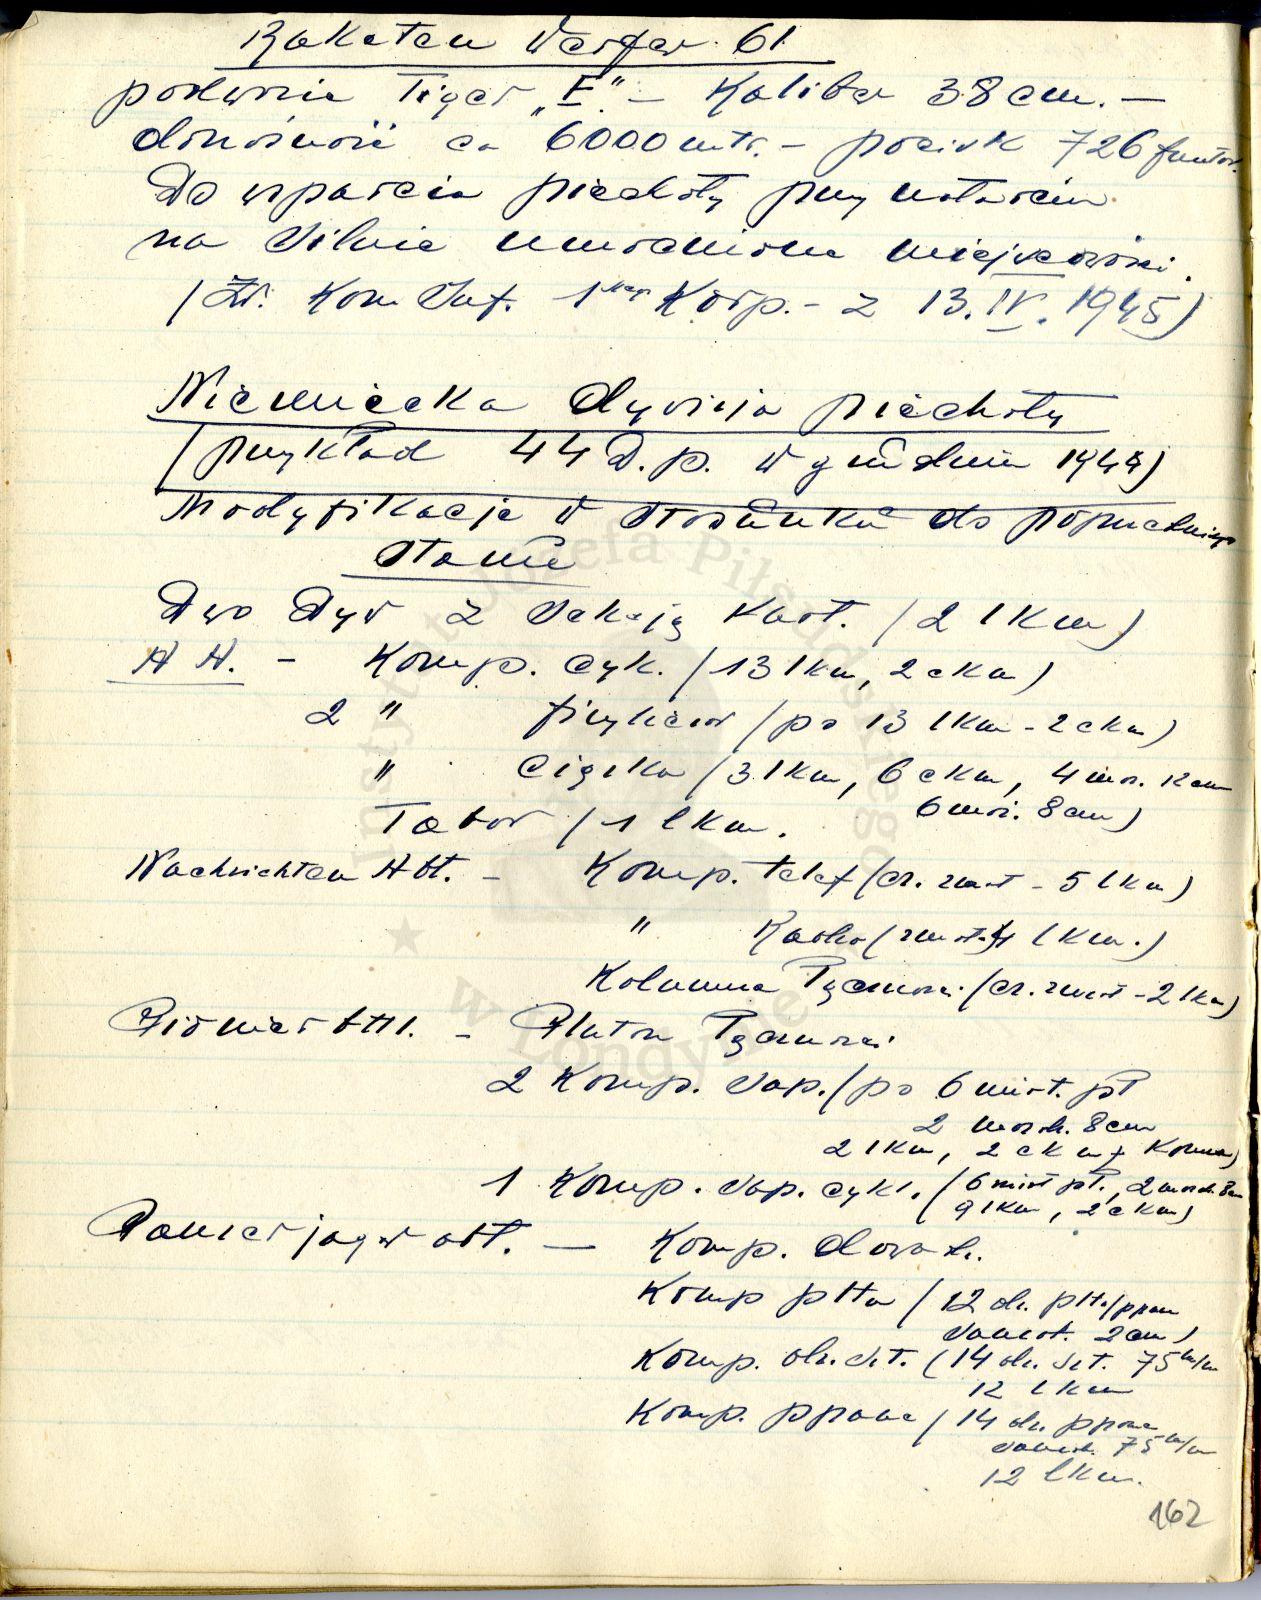 Raketen Werfer 61
podwozie Tiger „E” – Kaliber 38 cm. –
donośność ca 6000 mtr. – pocisk 726 funtów.
Do wsparcia piechoty przy natarciu
na silnie umocnione miejscowości.
(Źr. Kom. Inf. 1 Korp. – z 13. IV. 1945)
Niemiecka dywizja piechoty
(przykład 44 D. p. w grudniu 1944)
Modyfikacje w stosunku do poprzedniego
stanu
Dwo Dyw z sekcją kart. (2 lkm)
A A. – Komp. cyk. (13 lkm, 2 ckm)
2 " fizylierów (po 13 lkm - 2 ckm)
" ciężka (3 lkm, 6 ckm, 4 moź. 12 cm
6 moź. 8 cm)
Tabor (1 lkm.
Nachrichten Abt. – Komp. telef (cz. zmot - 5 lkm)
" Radio (zmot. 4 lkm.)
Kolumna Łączności (cz. zmot - 2 lkm)
Pionier btl. – Pluton Łączności
2 Komp. sap. (po 6 miot. pł
2 moźdz. 8 cm
2 lkm, 2 ckm)
1 Komp. sap. cykl. (6 miot pł., 2 moźdz. 8 cm
9 lkm, 2 ckm)
Panzerjager abt. – Komp. dowodz.
Komp ptla (12 dz. ptla/ppanc
samoch. 2 cm)
Komp. dz. szt. (14 dz. szt. 75 m/m
12 lkm
Komp. ppanc (14 dz. ppanc
samoch. 75 m/m
12 lkm.
162
Instytut Józefa Piłsudskiego
w Londynie